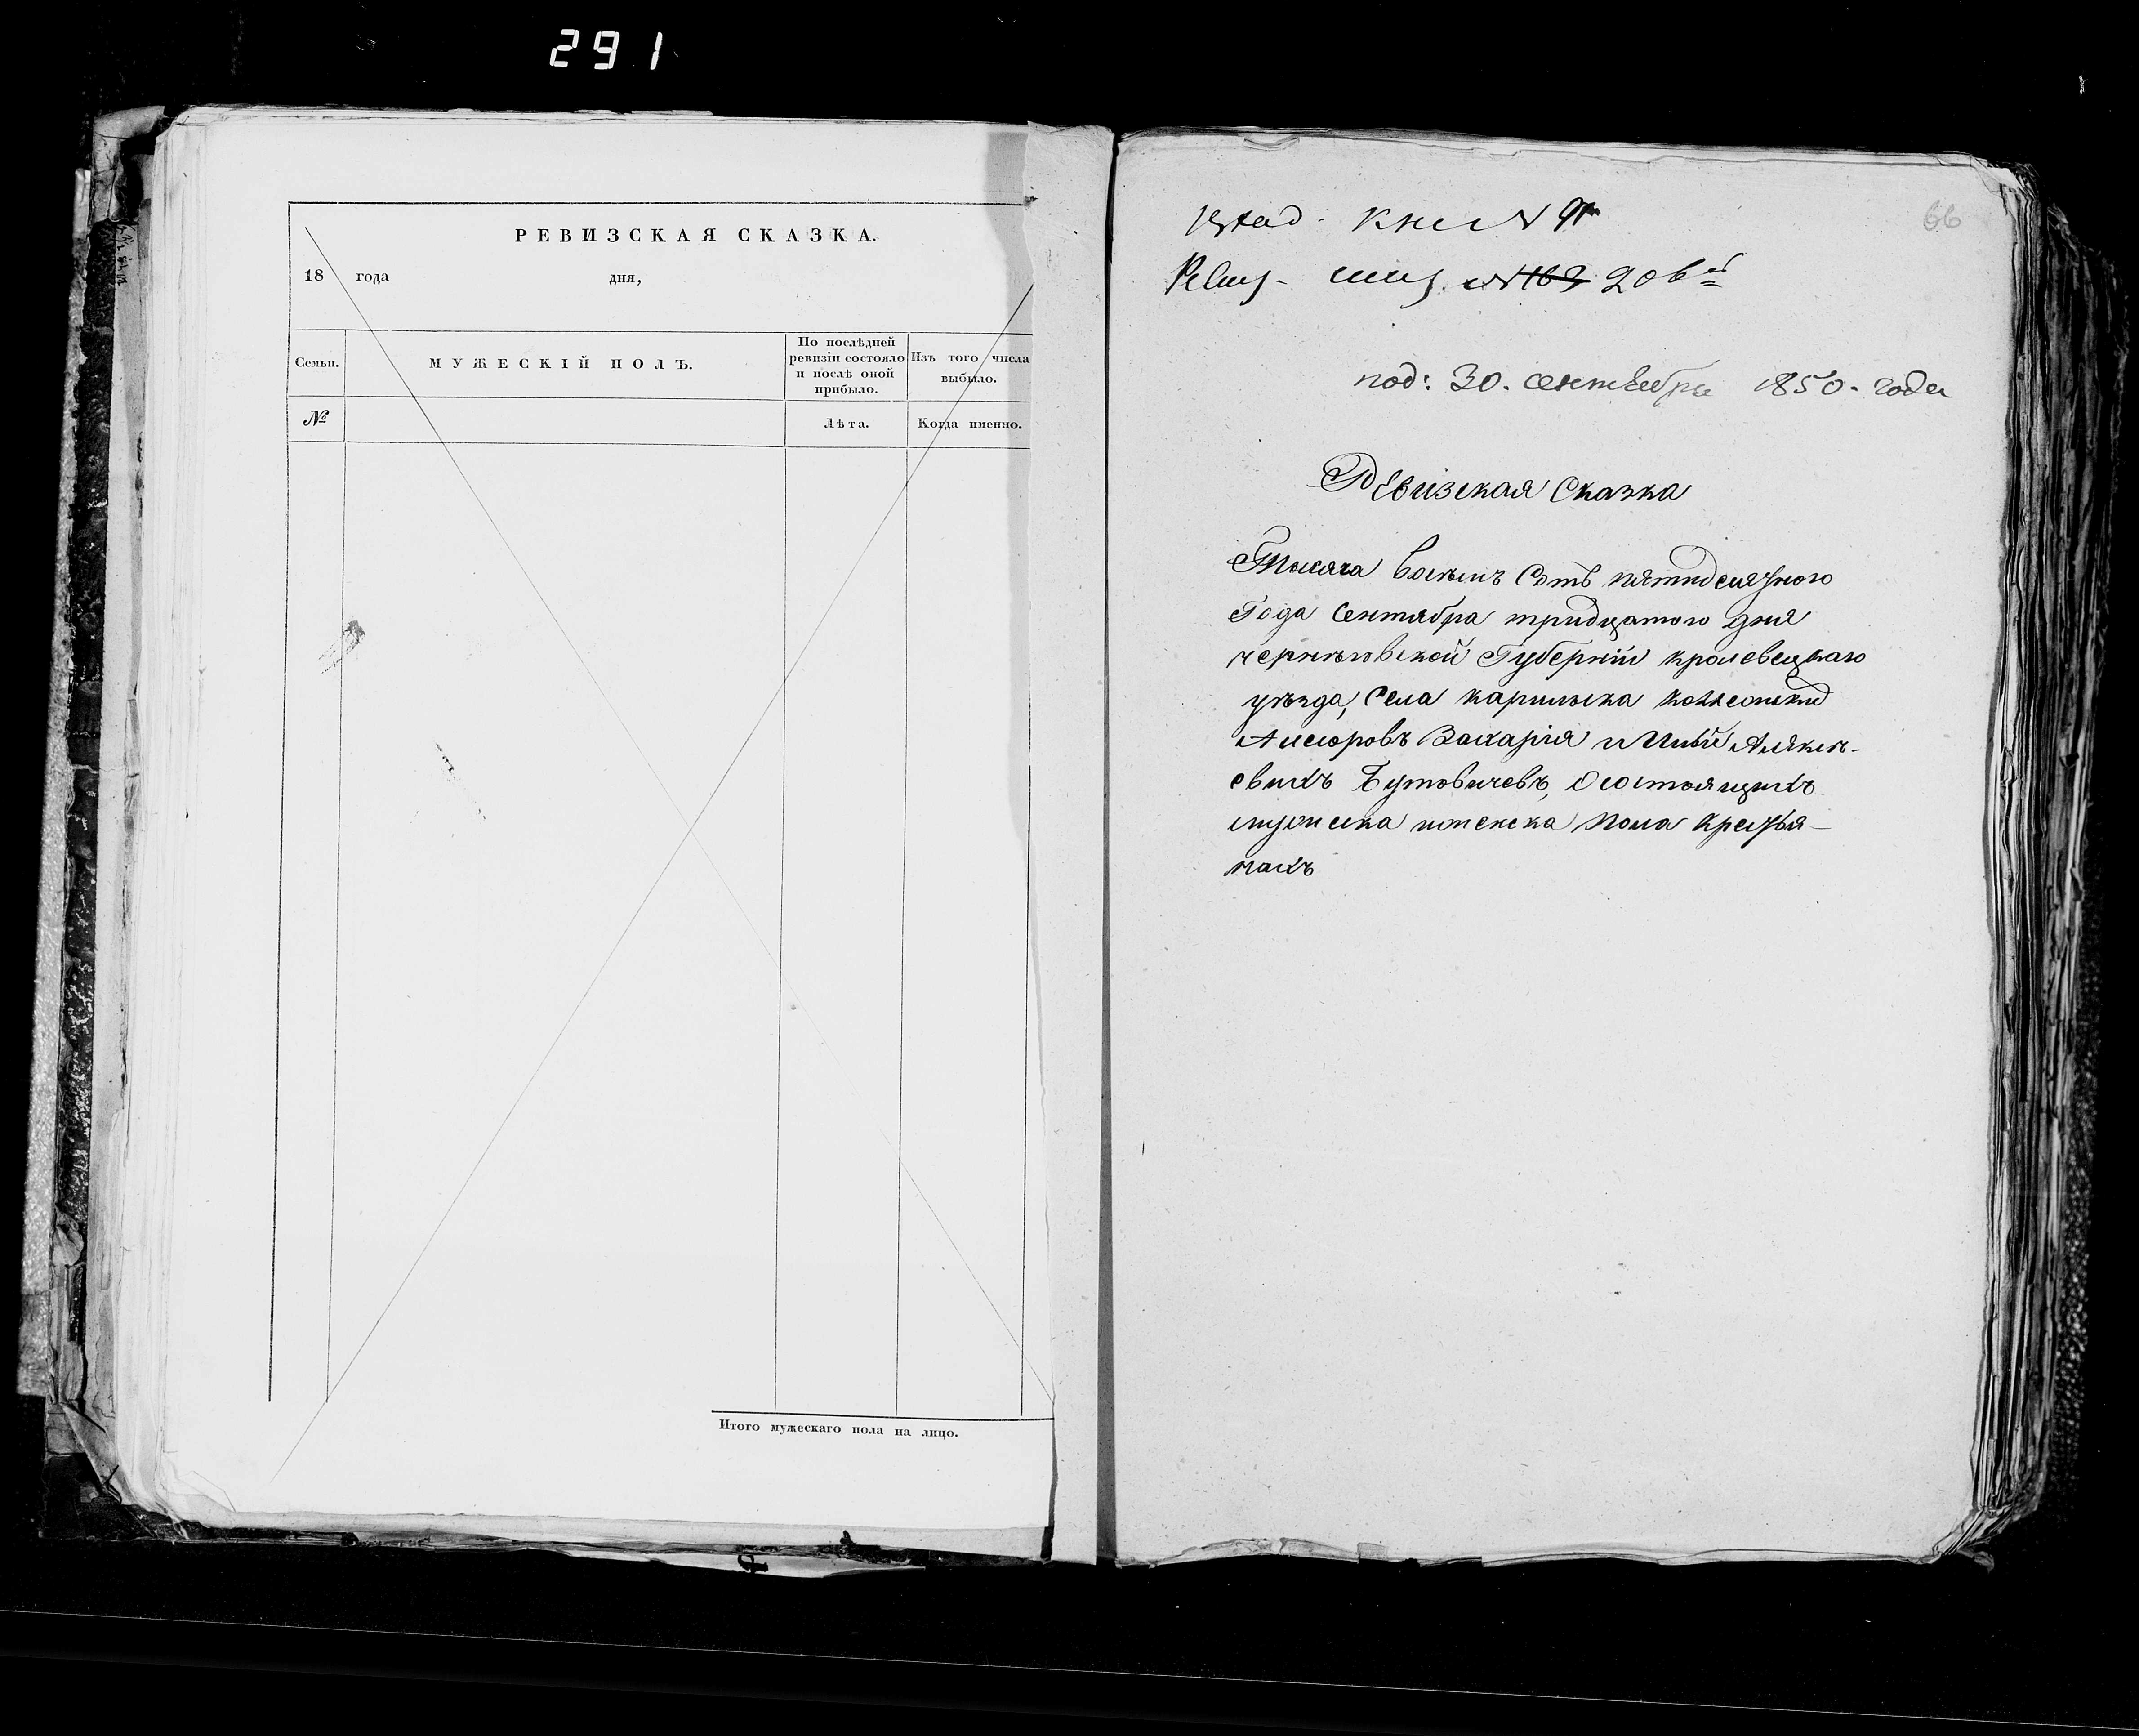 291
РЕВИЗСКАЯ СКАЗКА.
18 года дня,
Семьи.
МУЖЕСКІЙ ПОЛЪ.
По послѣдней
ревизіи состояло
и послѣ оной
прибыло.
Изъ того числа
выбыло.
№
Лѣта.
Когда именно.
Итого мужескаго пола на лицо.
66
кни № 91
№ 163 206
под: 30. сентября 1850. года
Ревизская Сказка
Тысяча восемъ Сотъ пятидесятного
Года Сентября тридцатого дня
черниговской Губерніи кролевецкаго
уѣзда, Села карильска
Захарія Алексѣ-
евичъ Бутовичевъ, О состоящихъ
мужеска и женска пола крестья-
нахъ